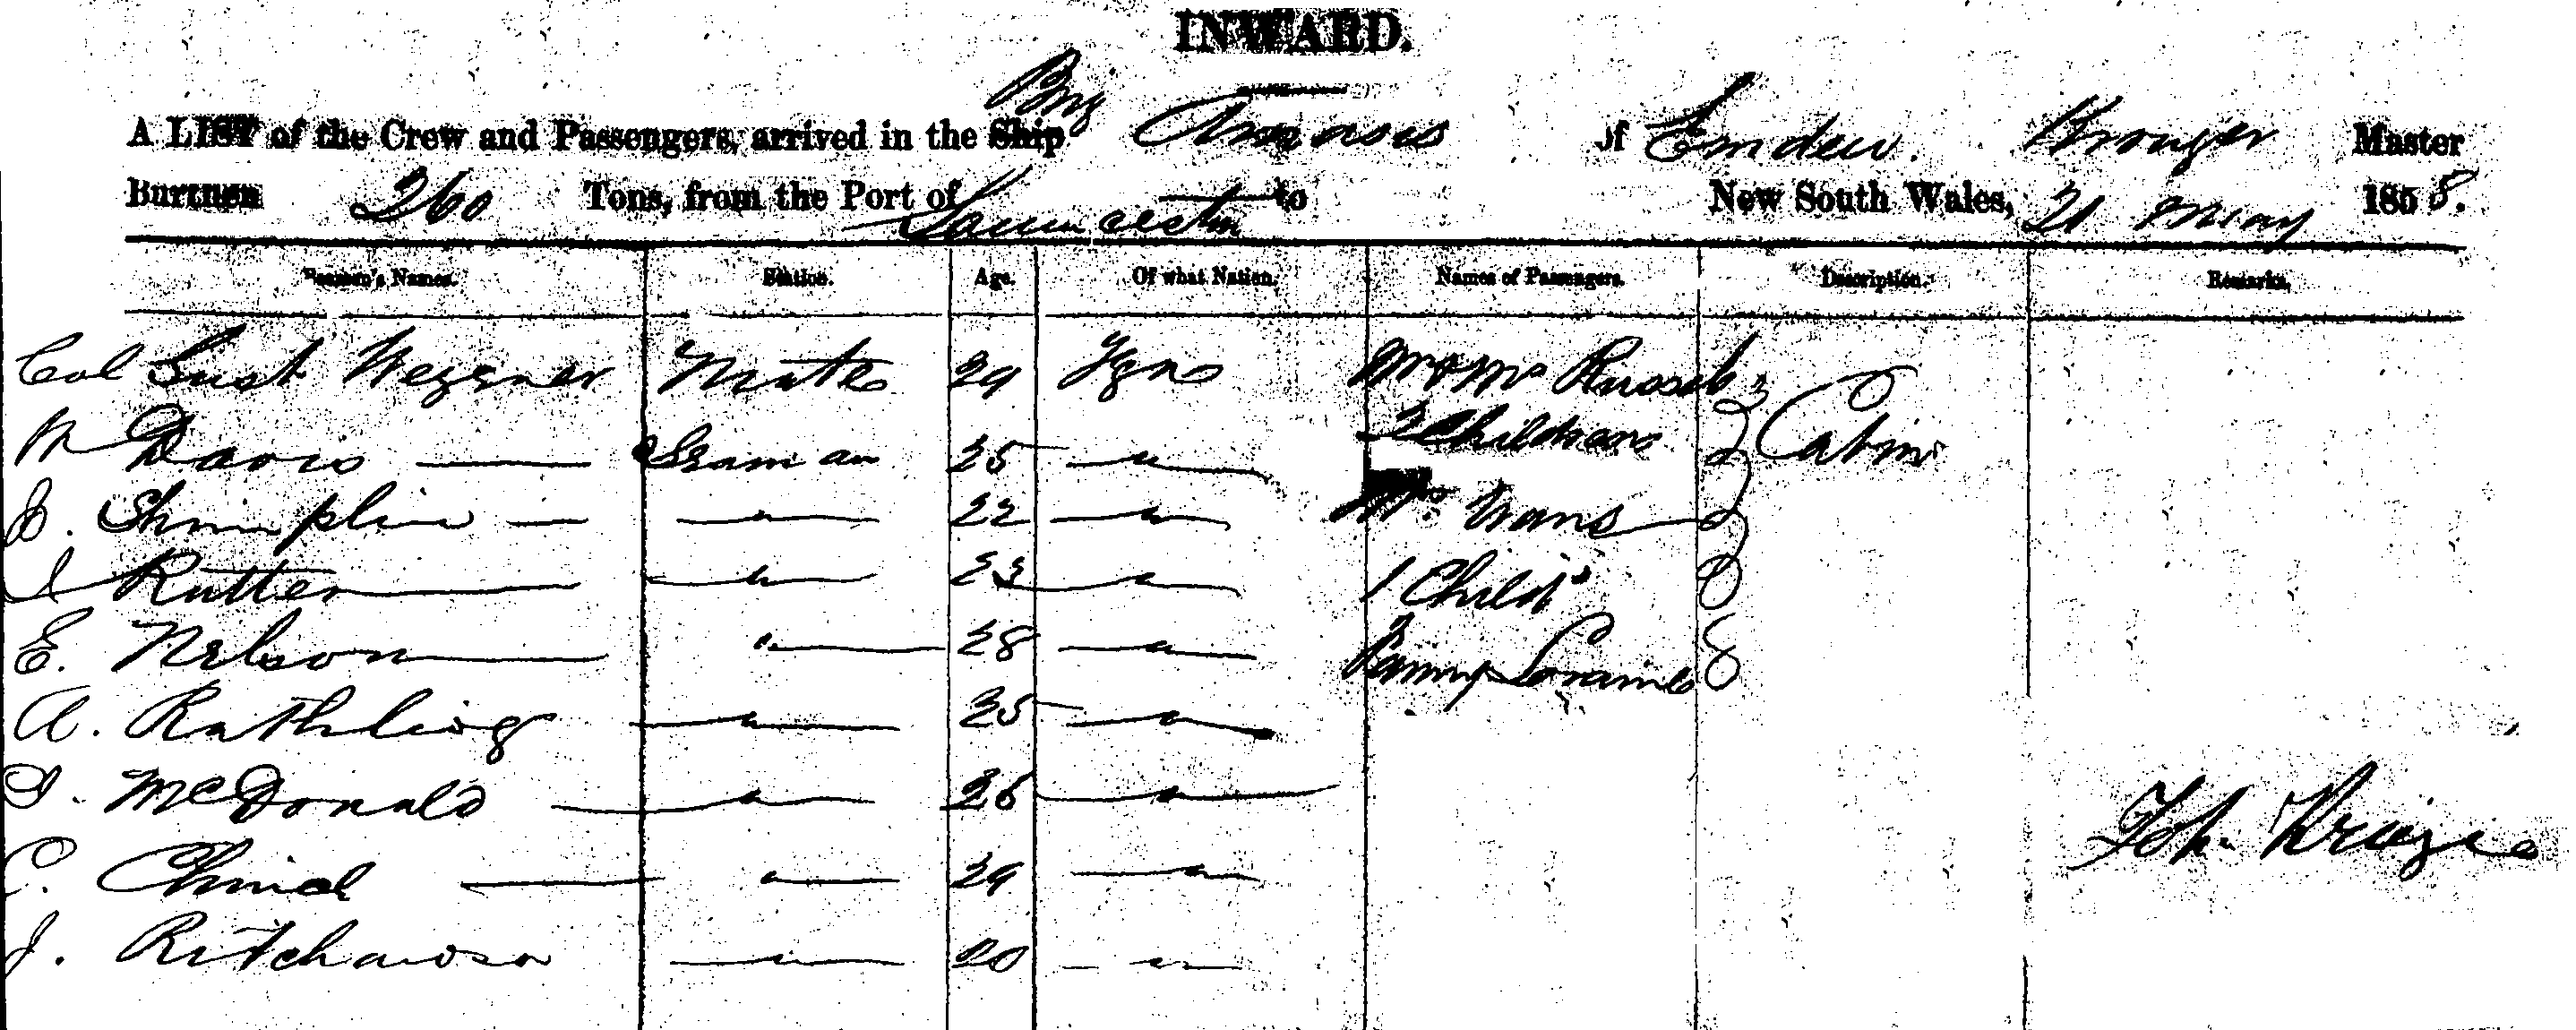 INWARD.
Brig
A LIST of the Crew and Passengers, arrived in the Ship Amasis of Emden. Kruger Master
Burthen 260 Tons, from the Port of Launceston to New South Wales, 21 May 1858.
Seamen's Names. Station. Age. Of what Nation. Names of Passengers. Description. Remarks.
Gust Mate 29 Mr & Mrs Russell
W Davis — Seaman 25 — " — 2 Children Cabin
Shimplin — — " — 22 — " — Mr Evans
Rutter — — " — 23 — " — 1 Child
E. Nelson — " — 28 — " — Fanny
A. Rathling — " — 25 — " —
McDonald — " — 26 — " —
C. — — " — 29 — " — Joh. Kruger
J. Ritchardson — " — 20 — " —